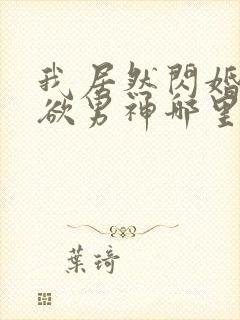 我居然閃婚
欲男神那里
葉琦